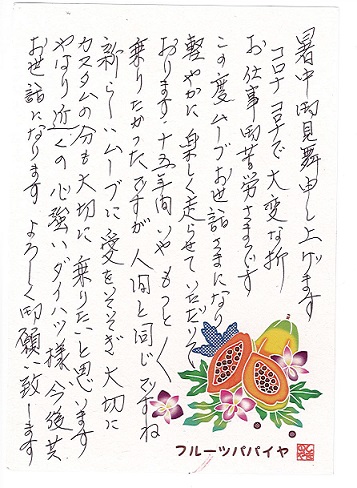 暑中御見舞申し上げます
コロナコロナで大変な折
お仕事御苦労さまです
この度ムーブお世話さまになり
軽やかに楽しく走らせていただいて
おります 十五年間いやもっと〱
乗りたかったですが人間と同じですね
新らしいムーブに愛をそそぎ大切に
カスタムの分も大切に乗りたいと思います
やはり近くの心強いダイハツ様 今後共
お世話になります よろしく御願い致します
フルーツパパイヤ